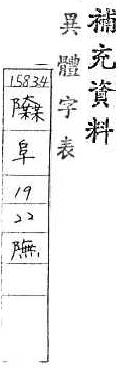 補充資料
異體字表
15834
阜
19
22